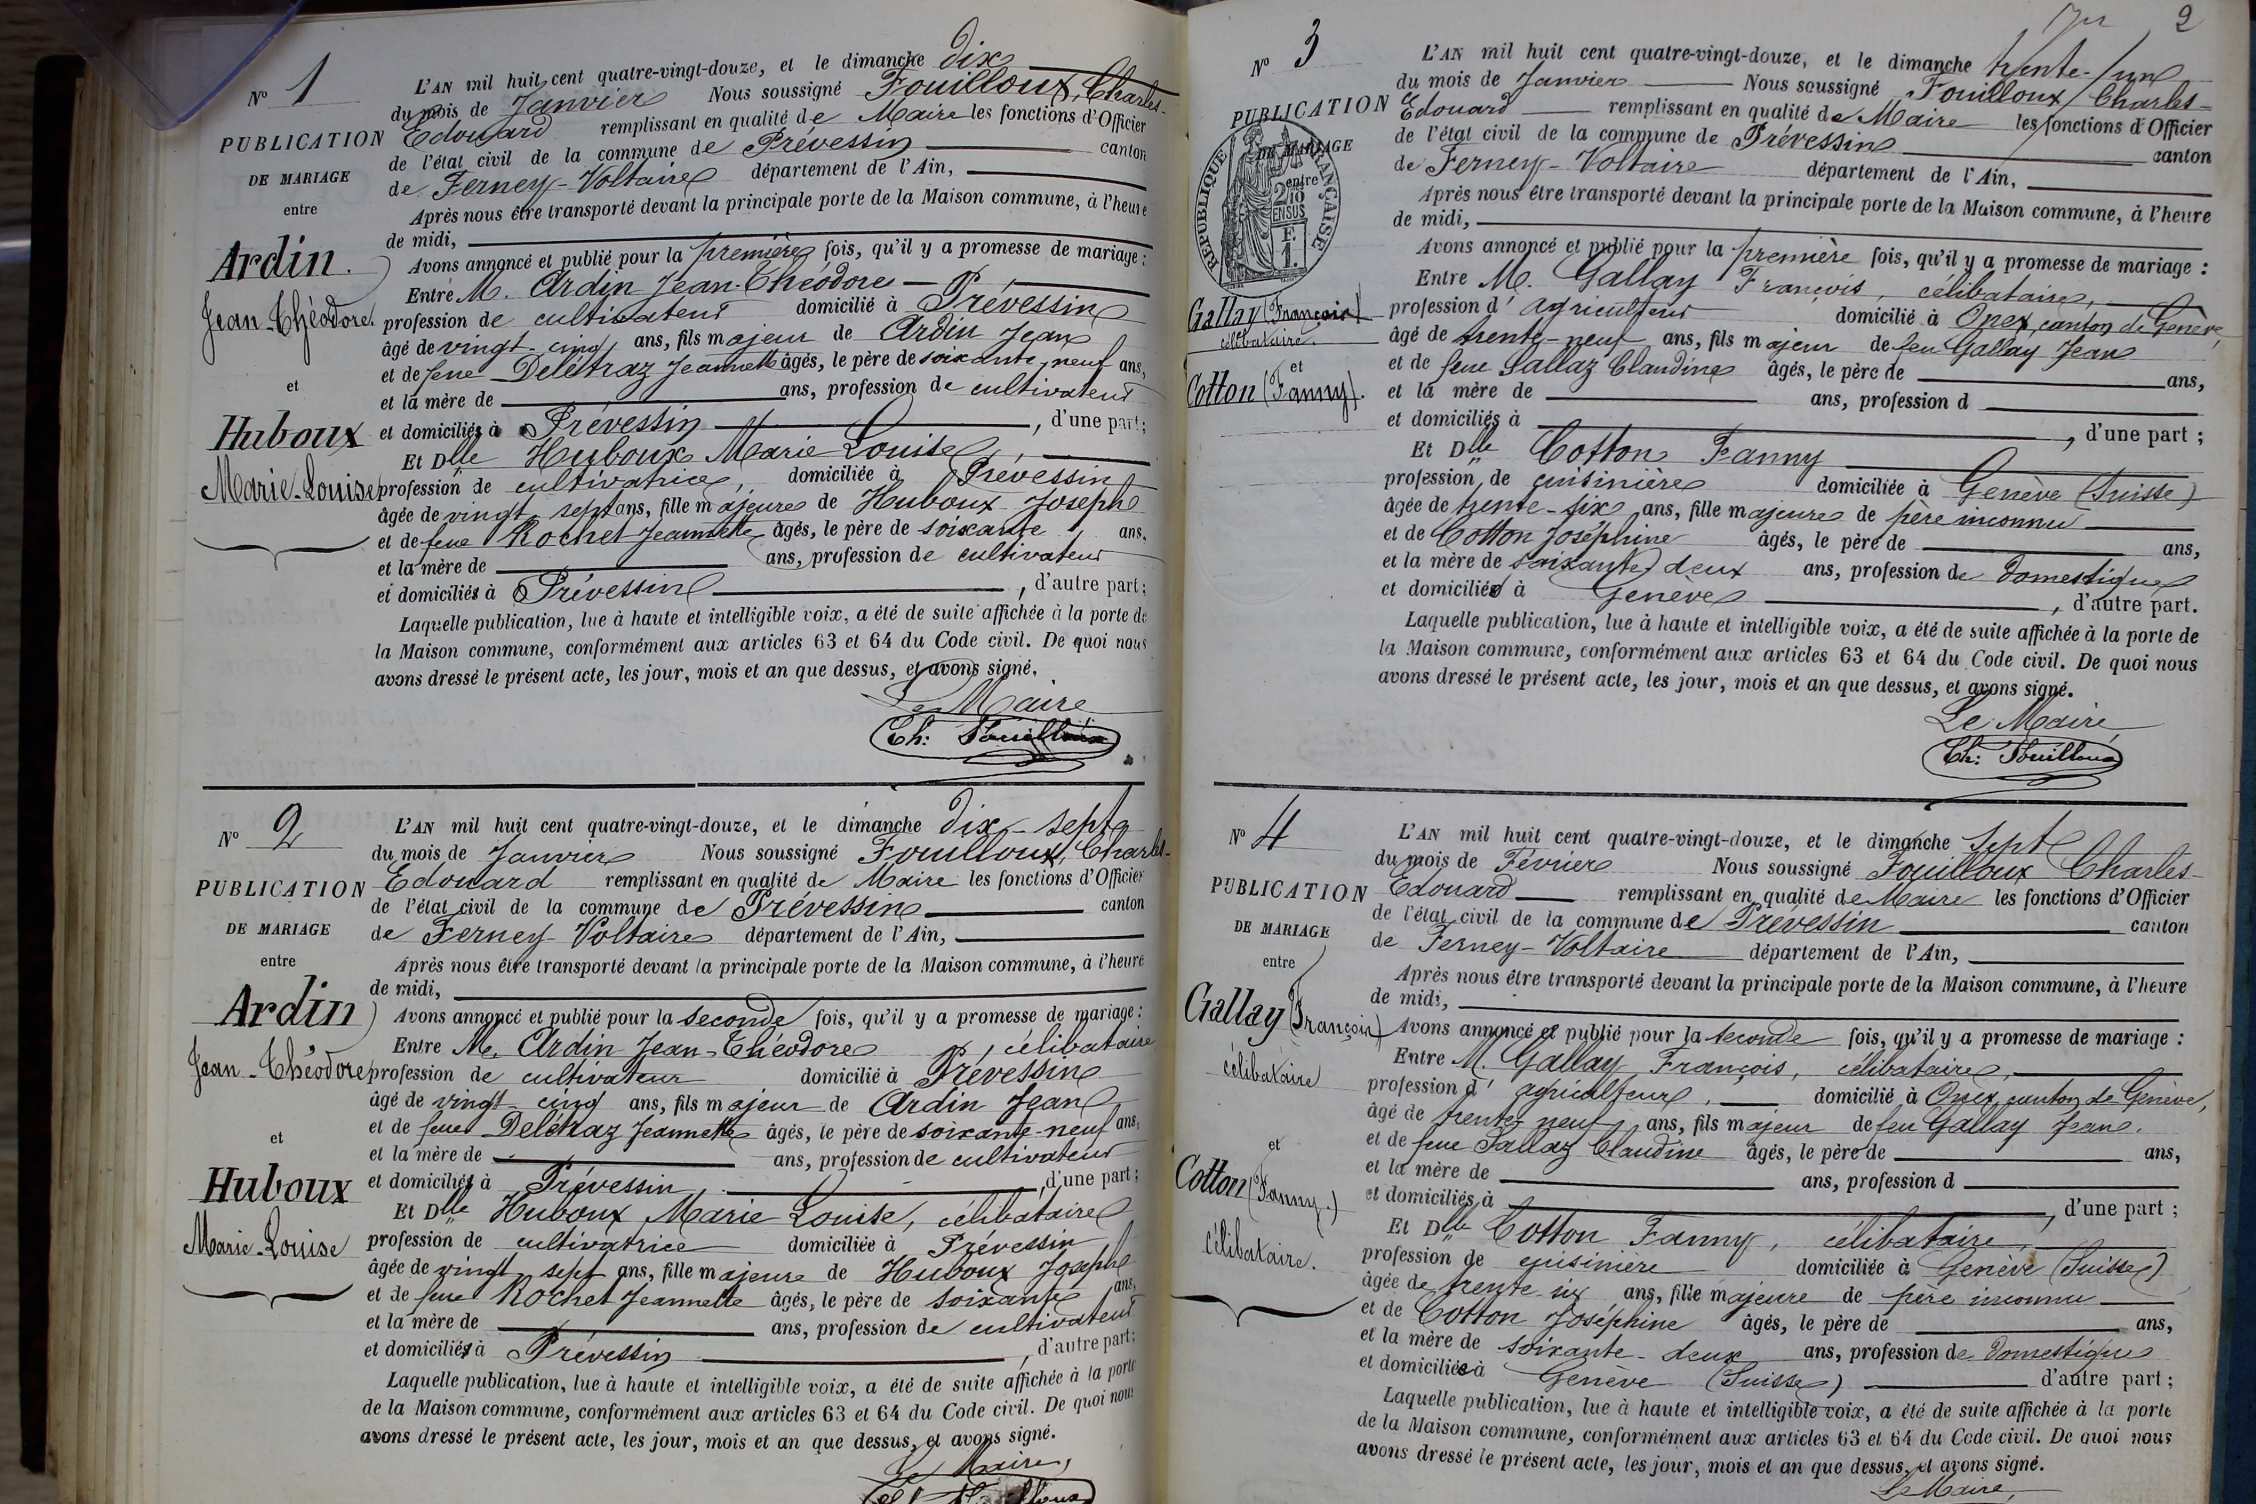 N° 1
PUBLICATION
DE MARIAGE
entre
Ardin
Jean-Théodore.
et
Huboux
Marie-Louise
L'AN mil huit cent quatre-vingt-douze, et le dimanche dix
du mois de Janvier Nous soussigné Fouilloux, Charles-
Edouard remplissant en qualité de Maire les fonctions d'Officier
de l'état civil de la commune de Prévessin canton
de Ferney-Voltaire département de l'Ain,
Après nous être transporté devant la principale porte de la Maison commune, à l'heure
de midi,
Avons annoncé et publié pour la première fois, qu'il y a promesse de mariage :
Entre M. Ardin Jean-Théodore
profession de cultivateur domicilié à Prévessin
âgé de vingt-cinq ans, fils majeur de Ardin Jean
et de feue Delétraz Jeannette âgés, le père de soixante-neuf ans,
et la mère de ans, profession de cultivateur
et domiciliés à Prévessin , d'une part ;
Et Dlle Huboux Marie Louise,
profession de cultivatrice, domiciliée à Prévessin
âgée de vingt-sept ans, fille majeure de Huboux Joseph
et de feue Rochet Jeannette âgés, le père de soixante ans,
et la mère de ans, profession de cultivateur
et domiciliés à Prévessin , d'autre part ;
Laquelle publication, lue à haute et intelligible voix, a été de suite affichée à la porte de
la Maison commune, conformément aux articles 63 et 64 du Code civil. De quoi nous
avons dressé le présent acte, les jour, mois et an que dessus, et avons signé.
Le Maire
Ch: Fouilloux
N° 2
PUBLICATION
DE MARIAGE
entre
Ardin
Jean-Théodore
et
Huboux
Marie-Louise
L'AN mil huit cent quatre-vingt-douze, et le dimanche dix-sept
du mois de Janvier Nous soussigné Fouilloux, Charles-
Edouard remplissant en qualité de Maire les fonctions d'Officier
de l'état civil de la commune de Prévessin canton
de Ferney-Voltaire département de l'Ain,
Après nous être transporté devant la principale porte de la Maison commune, à l'heure
de midi,
Avons annoncé et publié pour la seconde fois, qu'il y a promesse de mariage :
Entre M. Ardin Jean-Théodore , célibataire
profession de cultivateur domicilié à Prévessin
âgé de vingt-cinq ans, fils majeur de Ardin Jean
et de feue Delétraz Jeannette âgés, le père de soixante-neuf ans,
et la mère de ans, profession de cultivateur
et domiciliés à Prévessin , d'une part ;
Et Dlle Huboux Marie Louise, célibataire
profession de cultivatrice domiciliée à Prévessin
âgée de vingt-sept ans, fille majeure de Huboux Joseph
et de feue Rochet Jeannette âgés, le père de soixante ans,
et la mère de ans, profession de cultivateur
et domiciliés à Prévessin , d'autre part ;
Laquelle publication, lue à haute et intelligible voix, a été de suite affichée à la porte
de la Maison commune, conformément aux articles 63 et 64 du Code civil. De quoi nous
avons dressé le présent acte, les jour, mois et an que dessus, et avons signé.
Le Maire,
2
N° 3
PUBLICATION
DE MARIAGE
entre
RÉPUBLIQUE FRANÇAISE
2/10 EN SUS
F. 1.
Gallay (François)
célibataire.
et
Cotton (Fanny).
L'AN mil huit cent quatre-vingt-douze, et le dimanche trente-un
du mois de Janvier Nous soussigné Fouilloux Charles-
Edouard remplissant en qualité de Maire les fonctions d'Officier
de l'état civil de la commune de Prévessin canton
de Ferney-Voltaire département de l'Ain,
Après nous être transporté devant la principale porte de la Maison commune, à l'heure
de midi,
Avons annoncé et publié pour la première fois, qu'il y a promesse de mariage :
Entre M. Gallay François, célibataire,
profession d'agriculteur domicilié à Onex, canton de Genève,
âgé de trente-neuf ans, fils majeur de feu Gallay Jean
et de feue Sallaz Claudine âgés, le père de ans,
et la mère de ans, profession d
et domiciliés à , d'une part ;
Et Dlle Cotton Fanny
profession de cuisinière domiciliée à Genève (Suisse)
âgée de trente-six ans, fille majeure de père inconnu
et de Cotton Joséphine âgés, le père de ans,
et la mère de soixante-deux ans, profession de domestique
et domiciliée à Genève , d'autre part.
Laquelle publication, lue à haute et intelligible voix, a été de suite affichée à la porte de
la Maison commune, conformément aux articles 63 et 64 du Code civil. De quoi nous
avons dressé le présent acte, les jour, mois et an que dessus, et avons signé.
Le Maire,
Ch: Fouilloux
N° 4
PUBLICATION
DE MARIAGE
entre
Gallay (François)
célibataire
et
Cotton (Fanny.)
célibataire.
L'AN mil huit cent quatre-vingt-douze, et le dimanche sept
du mois de Février Nous soussigné Fouilloux Charles-
Edouard remplissant en qualité de Maire les fonctions d'Officier
de l'état civil de la commune de Prévessin canton
de Ferney-Voltaire département de l'Ain,
Après nous être transporté devant la principale porte de la Maison commune, à l'heure
de midi,
Avons annoncé et publié pour la seconde fois, qu'il y a promesse de mariage :
Entre M. Gallay, François, célibataire,
profession d'agriculteur, domicilié à Onex, canton de Genève,
âgé de trente-neuf ans, fils majeur de feu Gallay Jean.
et de feue Sallaz Claudine âgés, le père de ans,
et la mère de ans, profession d
et domiciliés à , d'une part ;
Et Dlle Cotton Fanny, célibataire,
profession de cuisinière domiciliée à Genève (Suisse)
âgée de trente-six ans, fille majeure de père inconnu
et de Cotton Joséphine âgés, le père de ans,
et la mère de soixante-deux ans, profession de domestique
et domiciliée à Genève (Suisse) d'autre part ;
Laquelle publication, lue à haute et intelligible voix, a été de suite affichée à la porte
de la Maison commune, conformément aux articles 63 et 64 du Code civil. De quoi nous
avons dressé le présent acte, les jour, mois et an que dessus, et avons signé.
Le Maire,